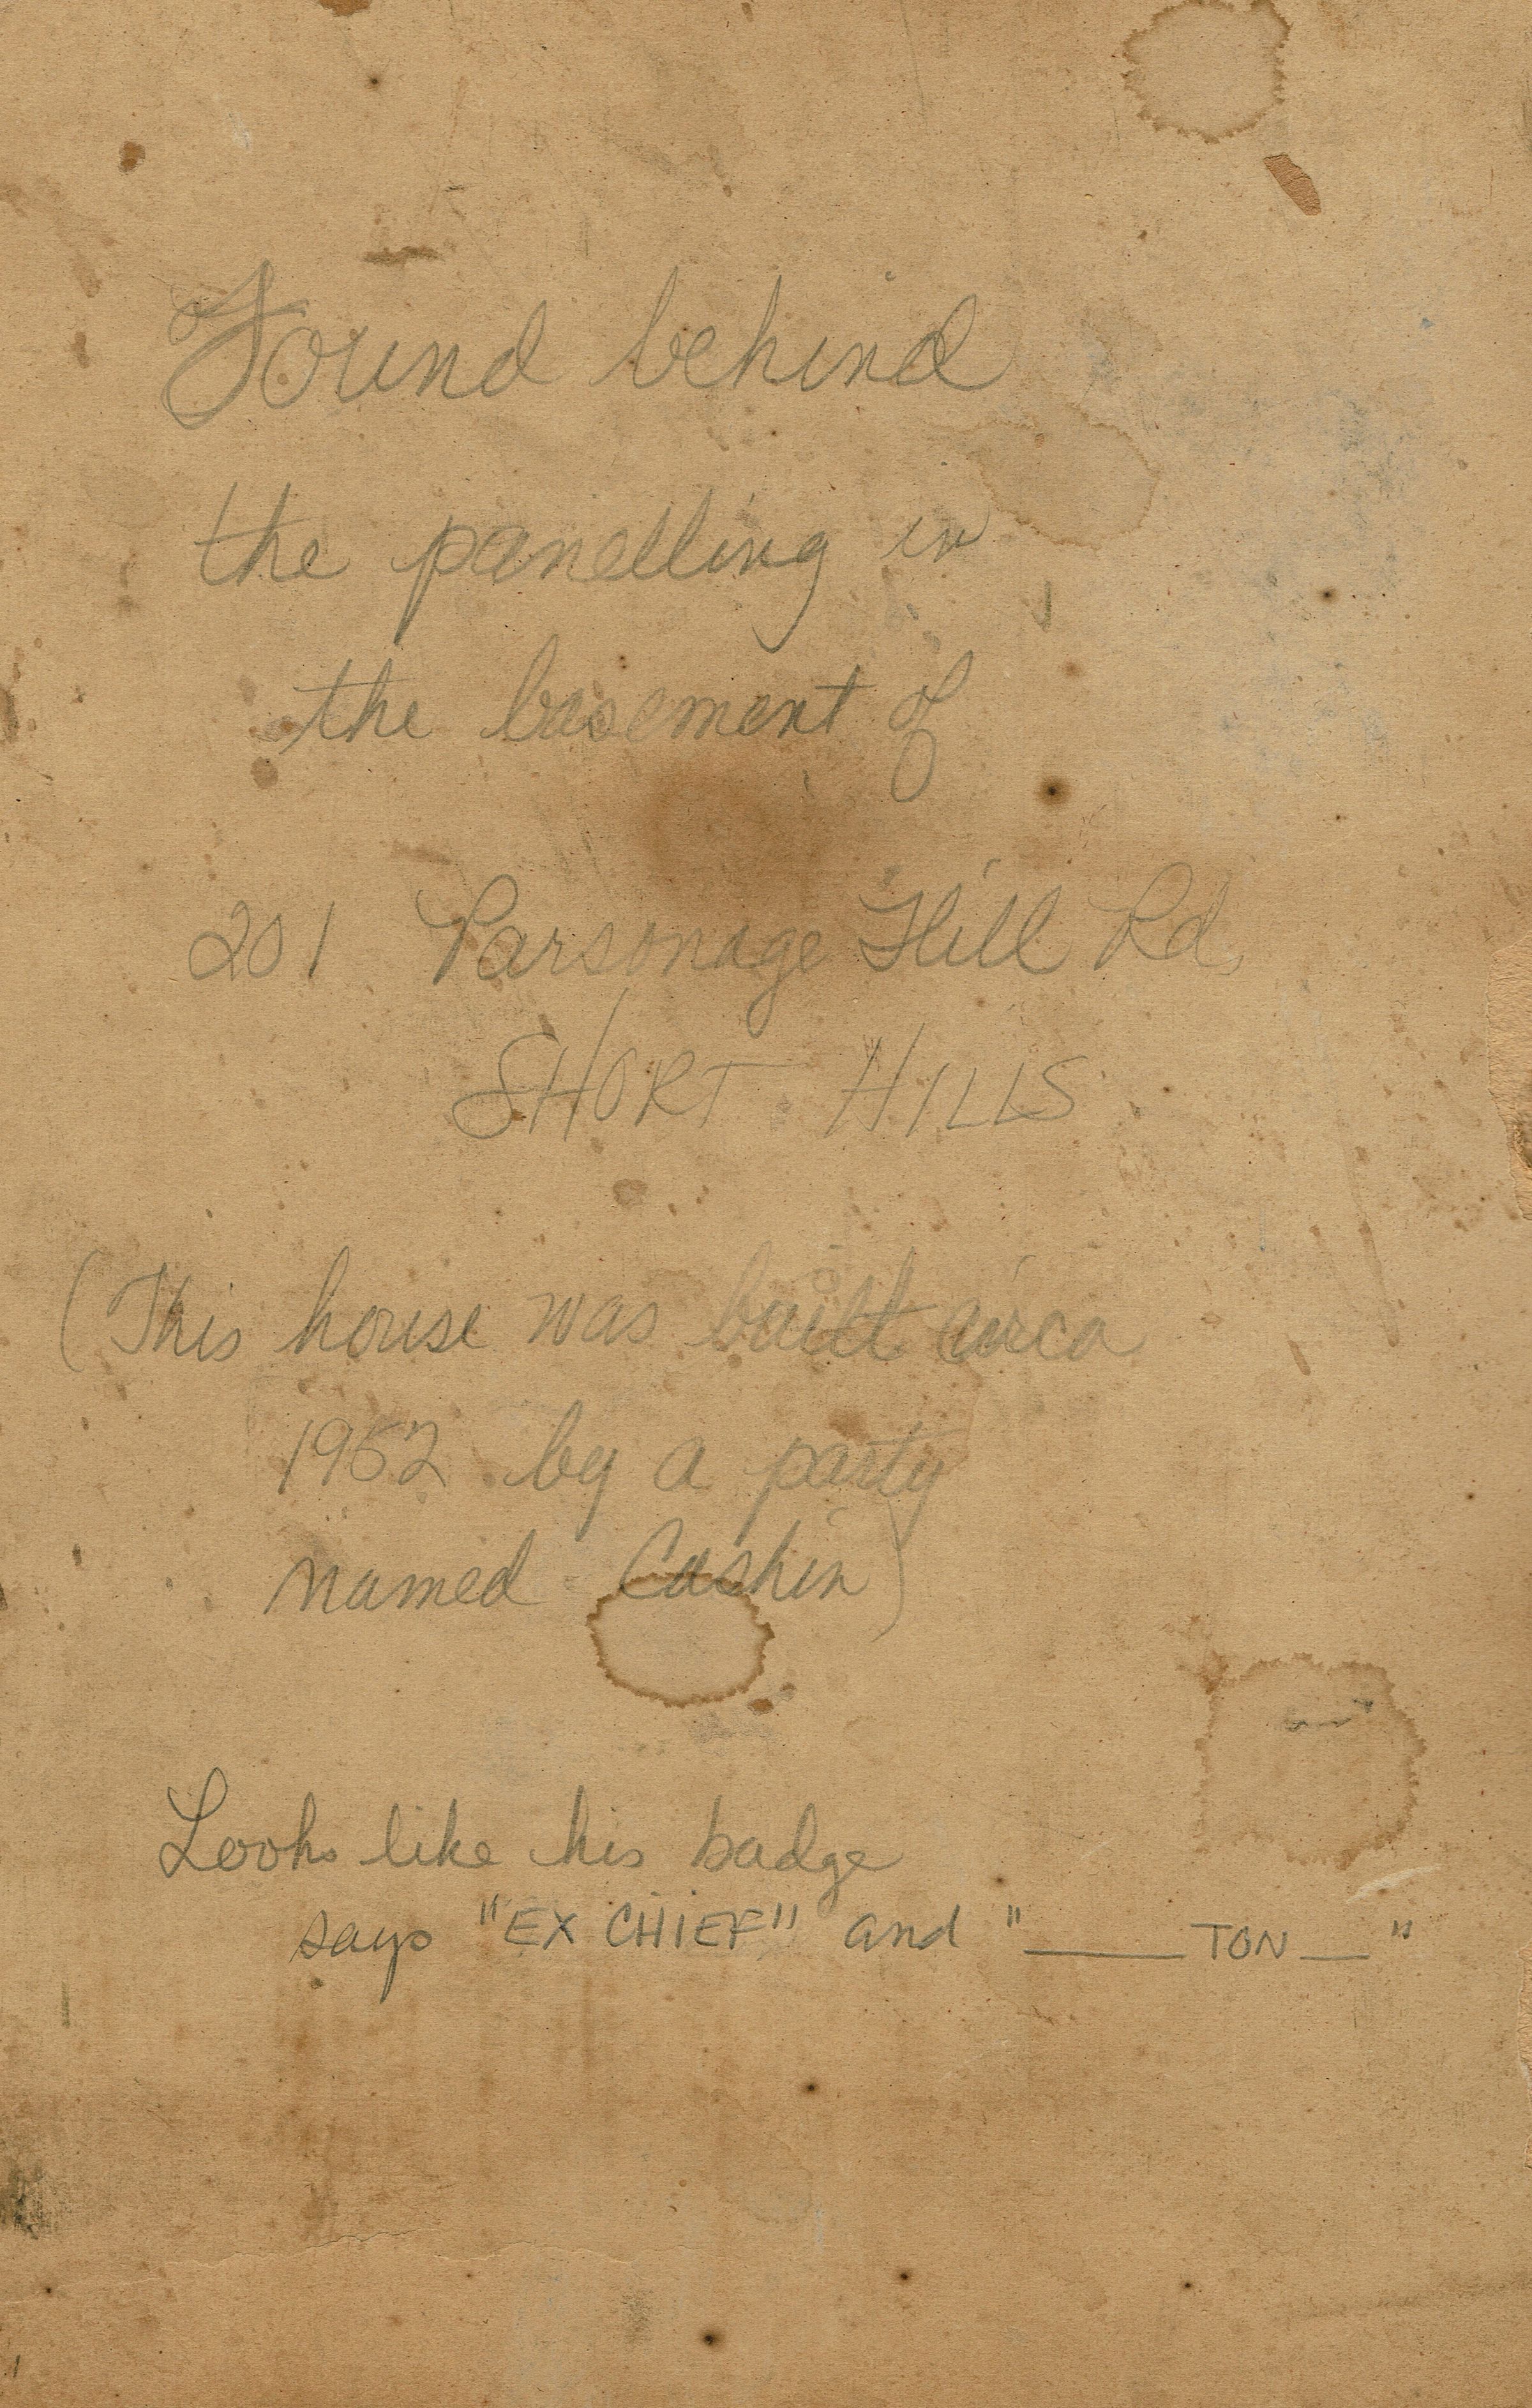 Found behind
the panelling in
the basement of
201 Parsonage Hill Rd.
SHORT HILLS
(This house was built circa
1952 by a party
named Cashin)
Looks like his badge
says "EX CHIEF" and "____TON__"